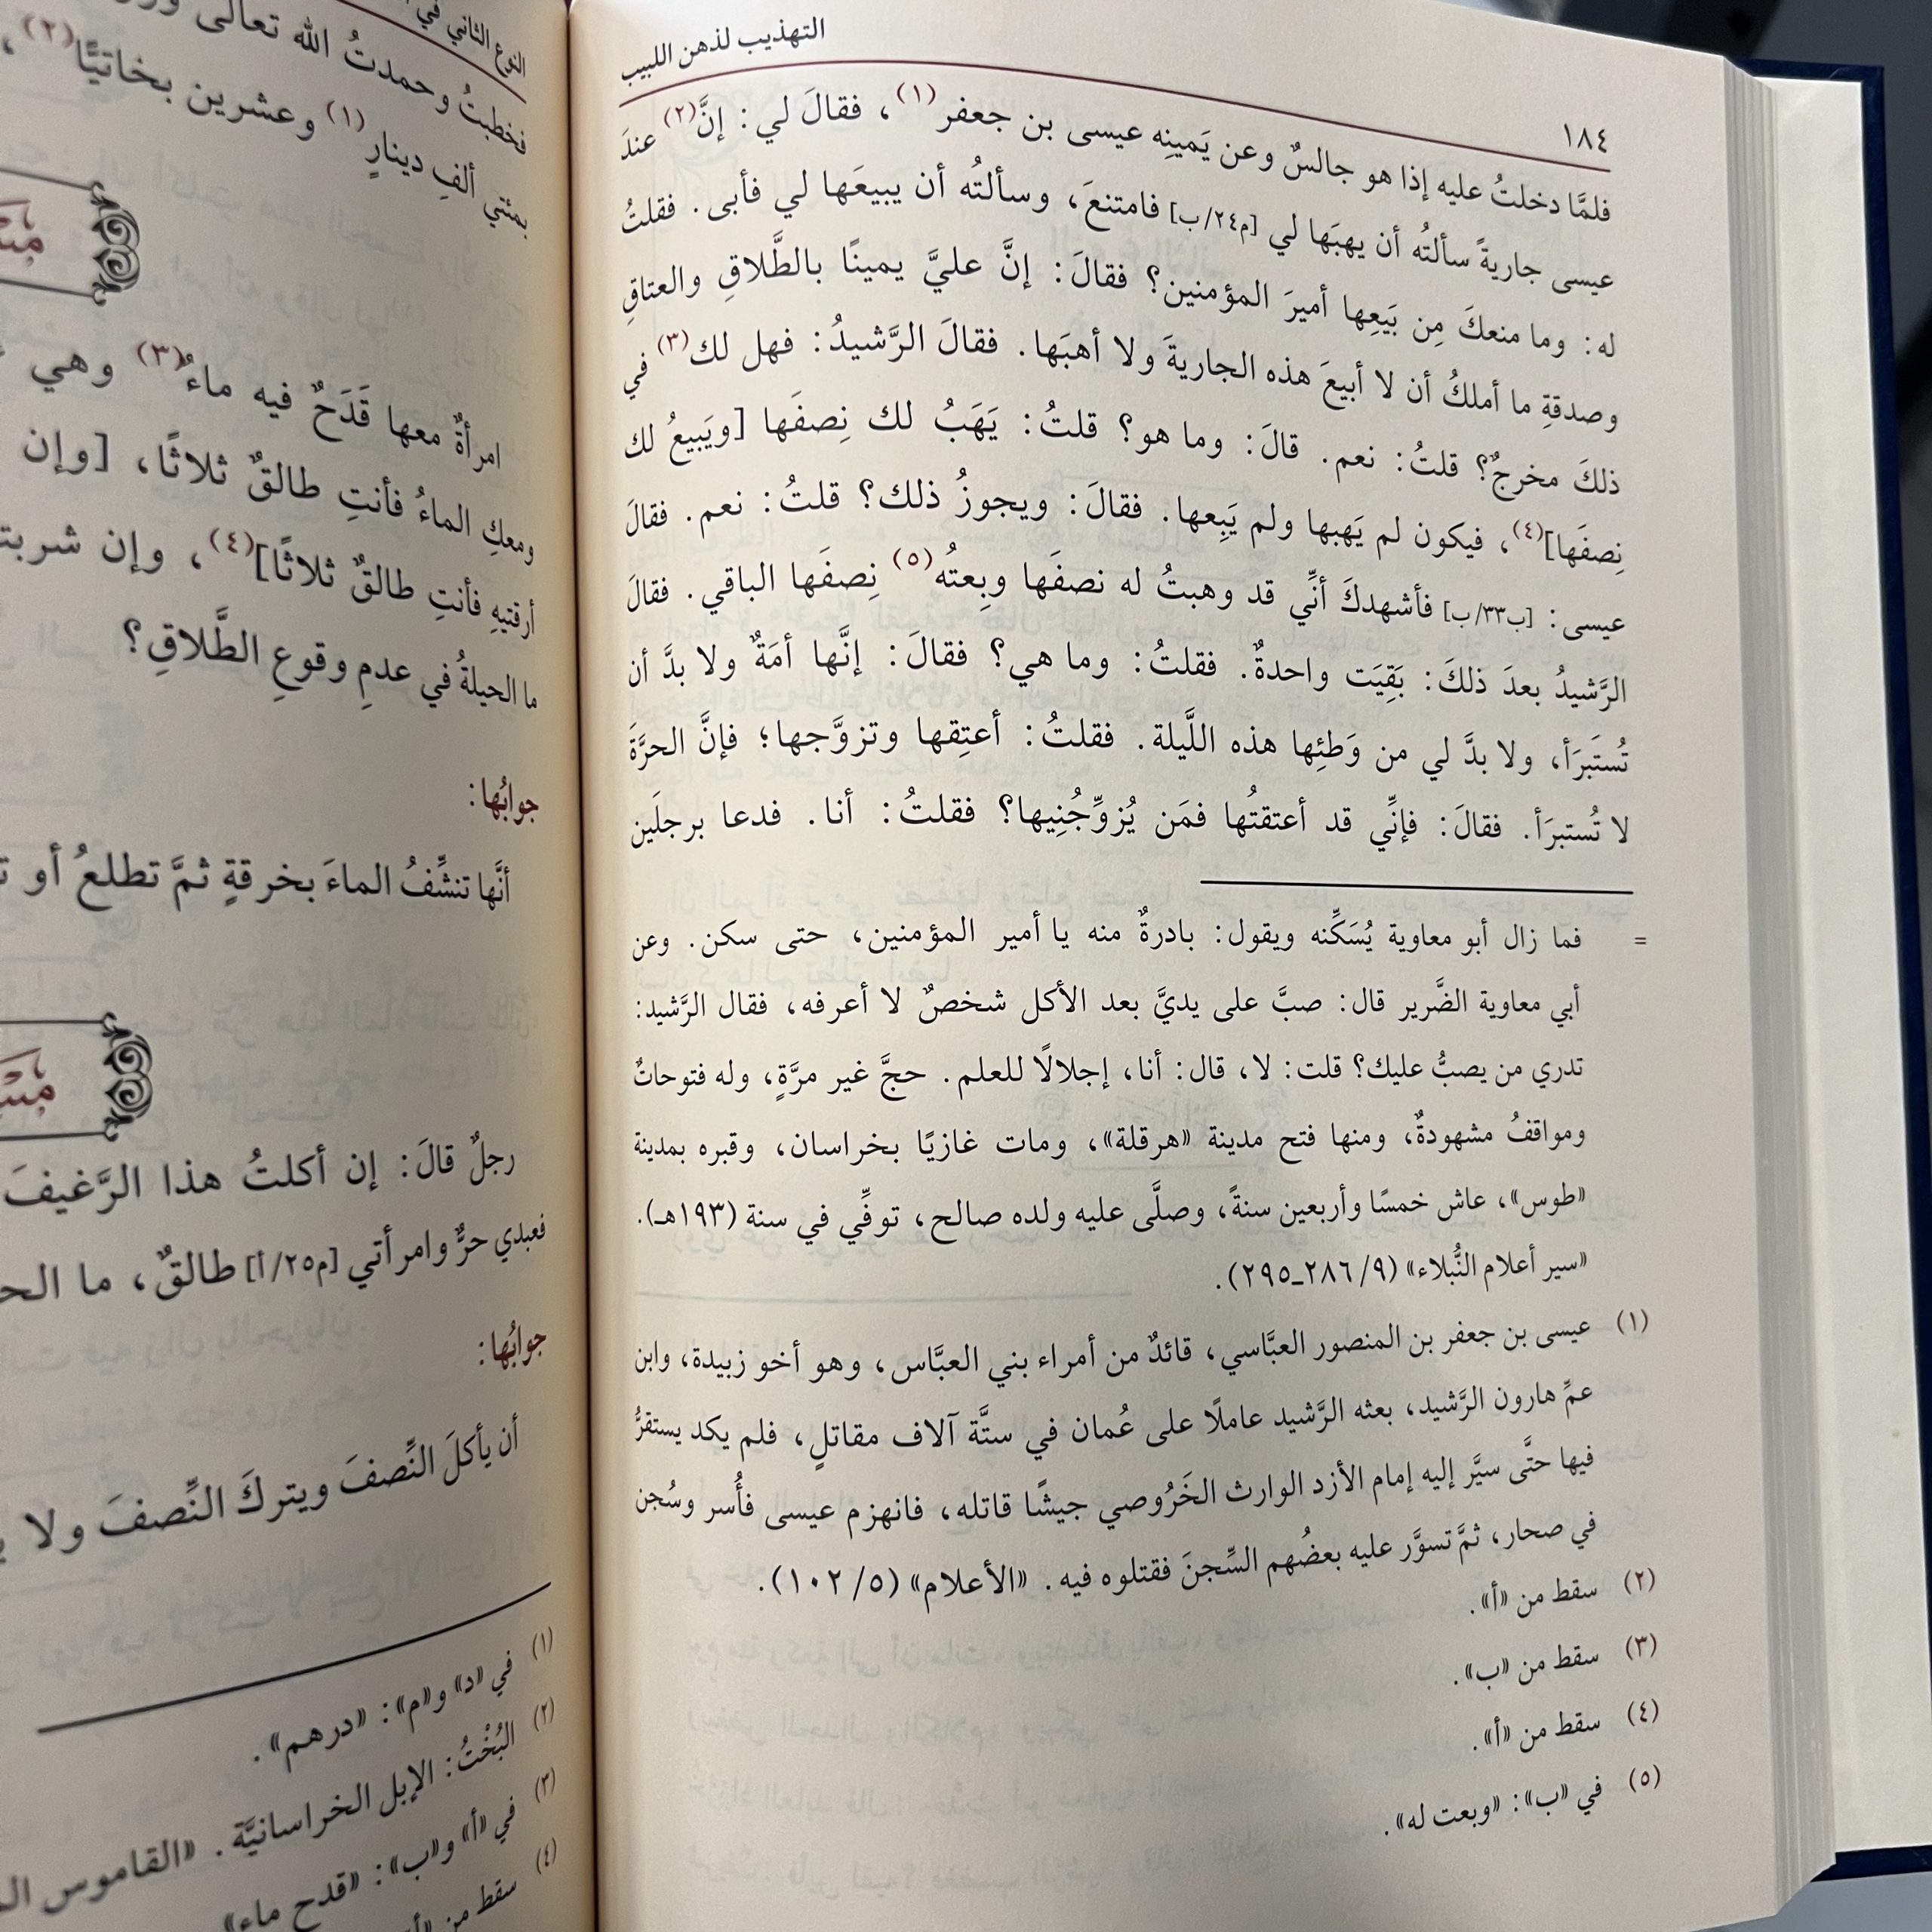 التهذيب لذهن اللبيب
١٨٤
فلمَّا دخلتُ عليه إذا هو جالسٌ وعن يَمينِه عيسى بن جعفر(١)، فقالَ لي: إنَّ(٢) عندَ
عيسى جاريةً سألتُه أن يهبَها لي [م٢٤/ب] فامتنعَ، وسألتُه أن يبيعَها لي فأبى. فقلتُ
له: وما منعكَ مِن بَيعِها أميرَ المؤمنين؟ فقالَ: إنَّ عليَّ يمينًا بالطَّلاقِ والعتاقِ
وصدقةِ ما أملكُ أن لا أبيعَ هذه الجاريةَ ولا أهبَها. فقالَ الرَّشيدُ: فهل لك(٣) في
ذلكَ مخرجٌ؟ قلتُ: نعم. قالَ: وما هو؟ قلتُ: يَهَبُ لك نِصفَها [ويَبيعُ لك
نِصفَها](٤)، فيكون لم يَهبها ولم يَبِعها. فقالَ: ويجوزُ ذلك؟ قلتُ: نعم. فقالَ
عيسى: [ب٣٣/ب] فأشهدكَ أنِّي قد وهبتُ له نصفَها وبِعتُه(٥) نِصفَها الباقي. فقالَ
الرَّشيدُ بعدَ ذلكَ: بَقِيَت واحدةٌ. فقلتُ: وما هي؟ فقالَ: إنَّها أمَةٌ ولا بدَّ أن
تُستَبرَأ، ولا بدَّ لي من وَطئِها هذه اللَّيلة. فقلتُ: أعتِقها وتزوَّجها؛ فإنَّ الحرَّةَ
لا تُستبرَأ. فقالَ: فإنِّي قد أعتقتُها فمَن يُزوِّجُنِيها؟ فقلتُ: أنا. فدعا برجلَين
= فما زال أبو معاوية يُسَكِّنه ويقول: بادرةٌ منه يا أمير المؤمنين، حتى سكن. وعن
أبي معاوية الضَّرير قال: صبَّ على يديَّ بعد الأكل شخصٌ لا أعرفه، فقال الرَّشيد:
تدري من يصبُّ عليك؟ قلت: لا، قال: أنا، إجلالًا للعلم. حجَّ غير مرَّةٍ، وله فتوحاتٌ
ومواقفُ مشهودةٌ، ومنها فتح مدينة «هرقلة»، ومات غازيًا بخراسان، وقبره بمدينة
«طوس»، عاش خمسًا وأربعين سنةً، وصلَّى عليه ولده صالح، توفِّي في سنة (١٩٣هـ).
«سير أعلام النُّبلاء» (٩/ ٢٨٦ـ٢٩٥).
(١) عيسى بن جعفر بن المنصور العبَّاسي، قائدٌ من أمراء بني العبَّاس، وهو أخو زبيدة، وابن
عمِّ هارون الرَّشيد، بعثه الرَّشيد عاملًا على عُمان في ستَّة آلاف مقاتلٍ، فلم يكد يستقرُّ
فيها حتَّى سيَّر إليه إمام الأزد الوارث الخَرُوصي جيشًا قاتله، فانهزم عيسى فأُسر وسُجن
في صحار، ثمَّ تسوَّر عليه بعضُهم السِّجنَ فقتلوه فيه. «الأعلام» (٥/ ١٠٢).
(٢) سقط من «أ».
(٣) سقط من «ب».
(٤) سقط من «أ».
(٥) في «ب»: «وبعت له».
النوع الثاني في
فخطبتُ وحمدتُ الله تعالى
بمئتي ألفِ دينارٍ(١) وعشرين بخاتيًّا(٢)،
امرأةٌ معها قَدَحٌ فيه ماءٌ(٣) وهي
ومعكِ الماءُ فأنتِ طالقٌ ثلاثًا، [وإن
أرقتيهِ فأنتِ طالقٌ ثلاثًا](٤)، وإن
ما الحيلةُ في عدمِ وقوعِ الطَّلاقِ؟
جوابُها:
أنَّها تنشِّفُ الماءَ بخرقةٍ ثمَّ تطلعُ أو
رجلٌ قالَ: إن أكلتُ هذا الرَّغيفَ
فعبدي حرٌّ وامرأتي [م٢٥/أ] طالقٌ، ما
جوابُها:
أن يأكلَ النِّصفَ ويتركَ النِّصفَ ولا
(١) في «د» و«م»: «درهم».
(٢) البُخْتُ: الإبل الخراسانيَّة. «القاموس
(٣) في «أ» و«ب»: «قدح ماء».
(٤) سقط من